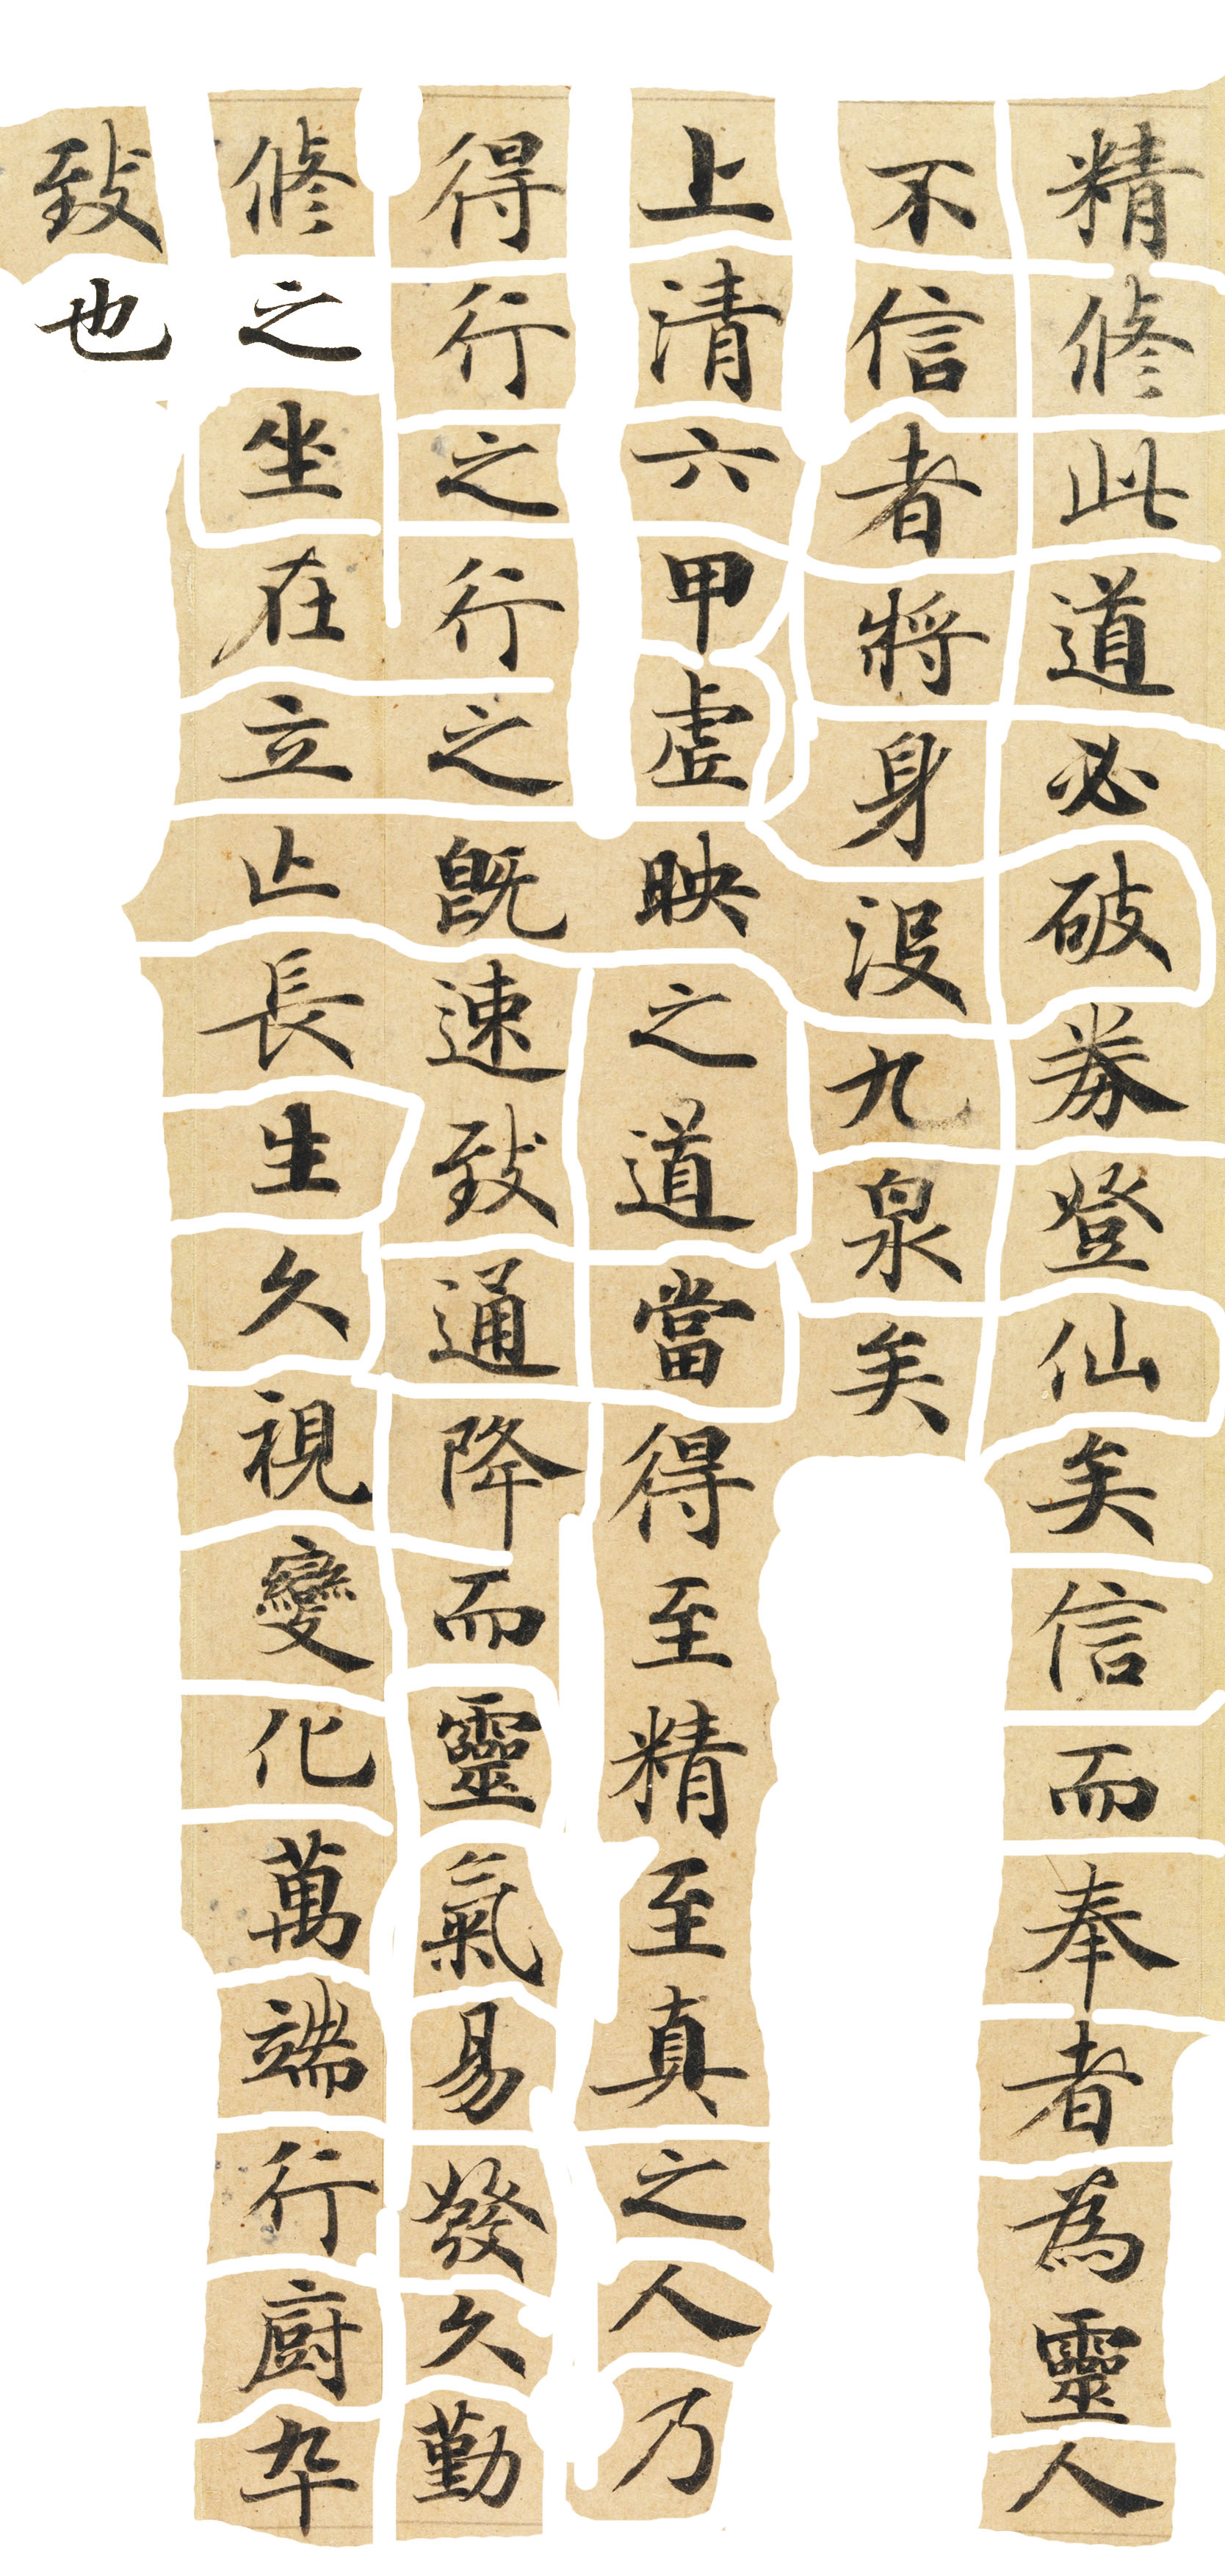 精修此道必破券登仙矣信而奉者為靈人
不信者將身沒九泉矣
上清六甲虛映之道當得至精至真之人乃
得行之行之既速致通降而靈氣易發久勤
修之坐在立亡長生久視變化萬端行廚卒
致也